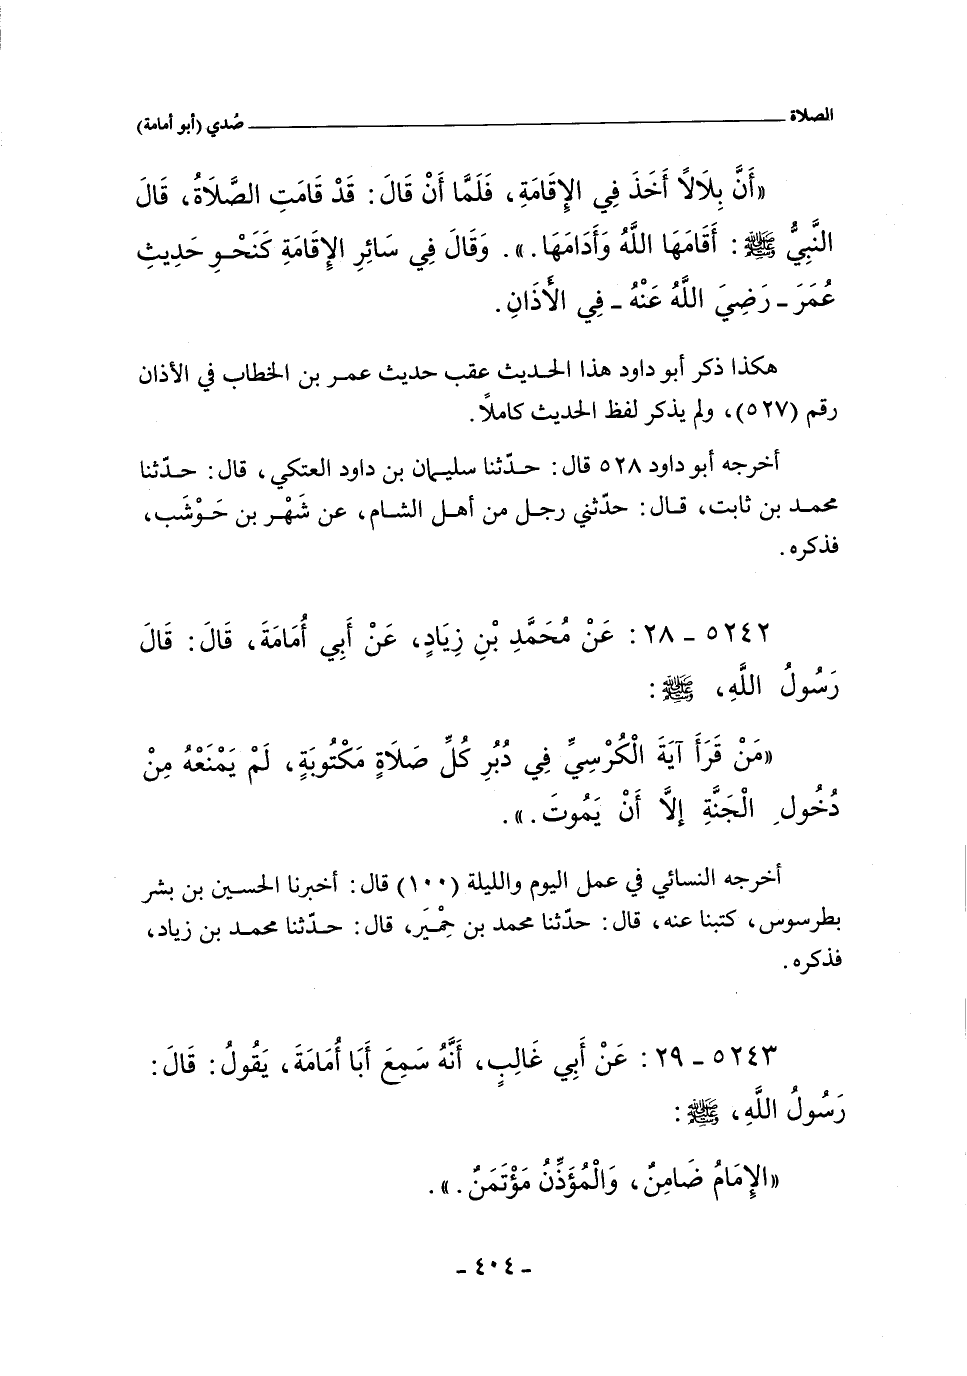 الصلاة ـــــــ صُدي (أبو أمامة)
«أَنَّ بِلَالاً أَخَذَ فِي الإِقَامَةِ، فَلَمَّا أَنْ قَالَ: قَدْ قَامَتِ الصَّلَاةُ، قَالَ
النَّبِيُّ ﷺ: أَقَامَهَا اللَّهُ وَأَدَامَهَا.». وَقَالَ فِي سَائِرِ الإِقَامَةِ كَنَحْوِ حَدِيثِ
عُمَرَ ـ رَضِيَ اللَّهُ عَنْهُ ـ فِي الأَذَانِ.
هكذا ذكر أبو داود هذا الحديث عقب حديث عمر بن الخطاب في الأذان
رقم (٥٢٧)، ولم يذكر لفظ الحديث كاملًا.
أخرجه أبو داود ٥٢٨ قال: حدّثنا سليمان بن داود العتكي، قال: حدّثنا
محمد بن ثابت، قال: حدّثني رجل من أهل الشام، عن شَهْر بن حَوْشَب،
فذكره.
٥٢٤٢ ـ ٢٨: عَنْ مُحَمَّدِ بْنِ زِيَادٍ، عَنْ أَبِي أُمَامَةَ، قَالَ: قَالَ
رَسُولُ اللَّهِ، ﷺ:
«مَنْ قَرَأَ آيَةَ الْكُرْسِيِّ فِي دُبُرِ كُلِّ صَلَاةٍ مَكْتُوبَةٍ، لَمْ يَمْنَعْهُ مِنْ
دُخُولِ الْجَنَّةِ إِلَّا أَنْ يَمُوتَ.».
أخرجه النسائي في عمل اليوم والليلة (١٠٠) قال: أخبرنا الحسين بن بشر
بطرسوس، كتبنا عنه، قال: حدّثنا محمد بن حِمْيَر، قال: حدّثنا محمد بن زياد،
فذكره.
٥٢٤٣ ـ ٢٩: عَنْ أَبِي غَالِبٍ، أَنَّهُ سَمِعَ أَبَا أُمَامَةَ، يَقُولُ: قَالَ:
رَسُولُ اللَّهِ، ﷺ:
«الإِمَامُ ضَامِنٌ، وَالْمُؤَذِّنُ مُؤْتَمَنٌ.».
ـ ٤٠٤ ـ